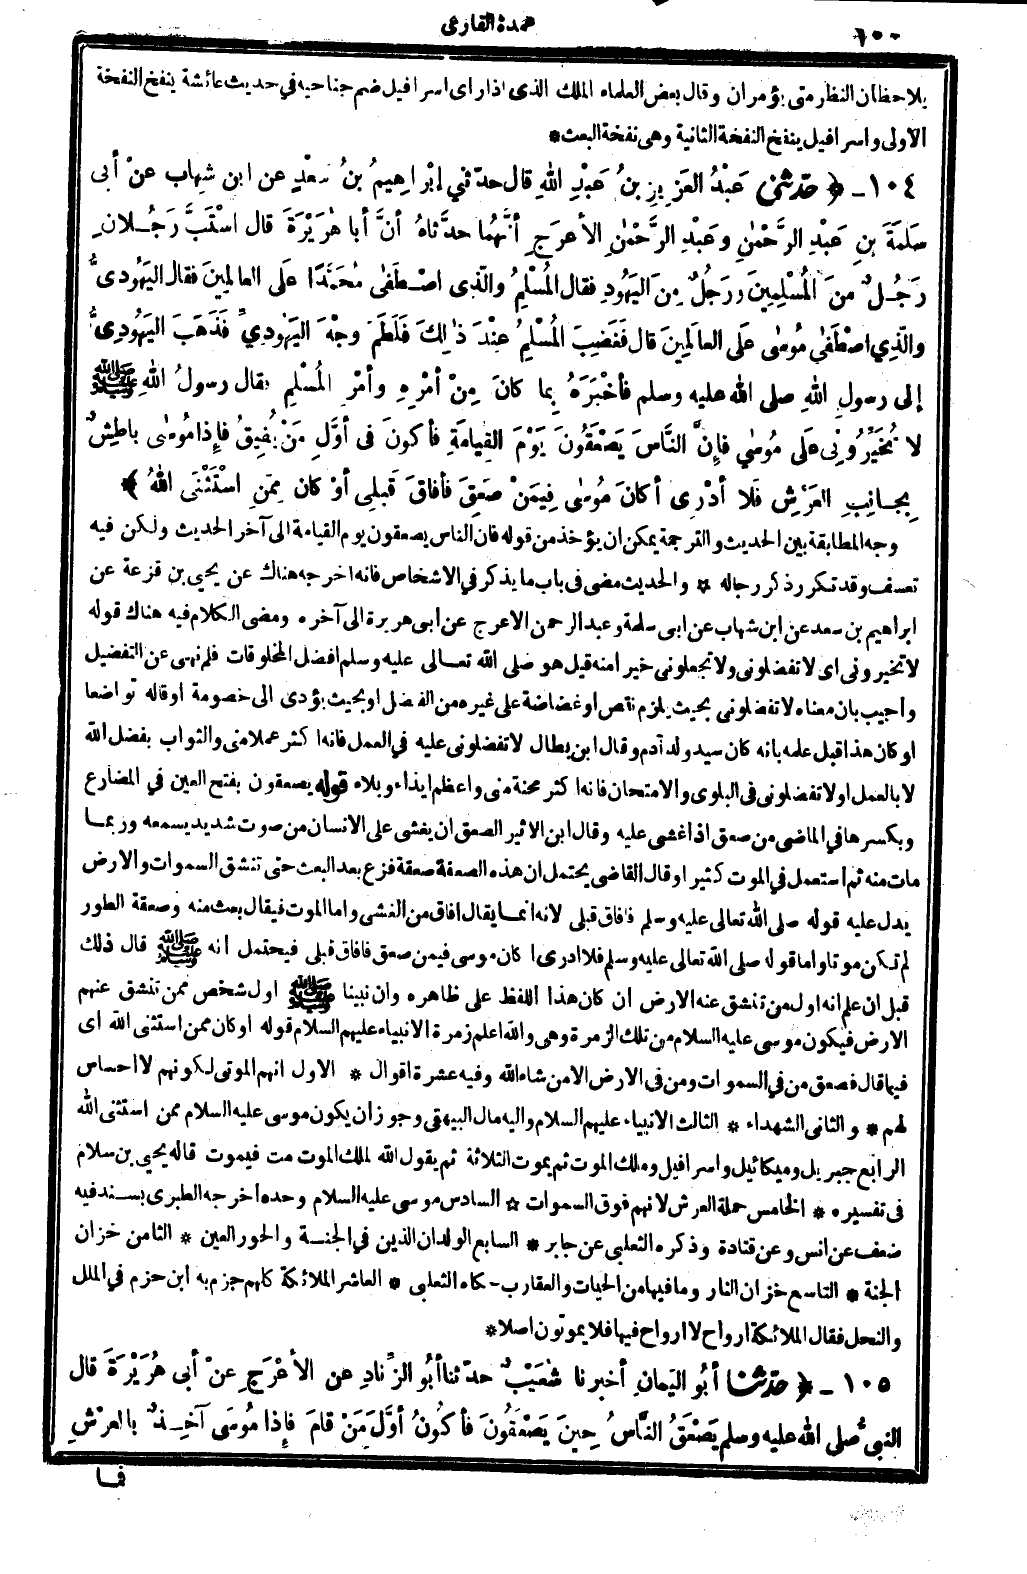 ١٠٠
عمدة القارئ
يلاحظان النظر متى يؤمران وقال بعض العلماء الملك الذى اذا راى اسرافيل ضم جناحيه في حديث عائشة ينفخ النفخة
الاولى واسرافيل ينفخ النفخة الثانية وهى نفخة البعث *
١٠٤ - ﴿ حدّثني عَبْدُ العَزِيزِ بنُ عَبْدِ اللهِ قال حدّثني إبْراهِيمُ بنُ سَعْدٍ عن ابنِ شِهابٍ عنْ أبى
سَلَمَةَ بنِ عَبْدِ الرَّحْمٰنِ وعَبْدِ الرَّحْمٰنِ الأعرَجِ أنَّهُما حدثاهُ أنَّ أبا هُرَيْرَةَ قال اسْتَبَّ رَجُلانِ
رَجُلٌ منَ المُسْلِمِينَ ورجُلٌ مِنَ اليَهُودِ فقال المُسْلِمُ والّذِى اصْطَفَى مُحَمَّدًا عَلَى العالَمِينَ فقال اليَهُودِىُّ
والّذِي اصْطَفَى مُوسٰى عَلَى العالَمِينَ قال فَغَضِبَ المُسْلِمُ عِنْدَ ذٰلِكَ فَلَطَمَ وجْهَ اليَهُودِيِّ فَذَهَبَ اليَهُودِىُّ
إلى رسولِ اللهِ صلى الله عليه وسلم فأخْبَرَهُ بِما كانَ مِنْ أمْرِهِ وأمْرِ المُسْلِمِ فقال رسولُ اللهِ ﷺ
لا تُخَيِّرُونِى عَلَى مُوسٰي فإنَّ النَّاسَ يَصْعَقُونَ يَوْمَ القِيامَةِ فأكونَ فى أوَّلِ مَنْ يُفِيقُ فإذا مُوسٰى باطِشٌ
بِجانِبِ العَرْشِ فَلا أدْرِى أكانَ مُوسٰى فِيمَنْ صَعِقَ فأفاقَ قَبلِى أوْ كان مِمَّنِ اسْتَثْنَى اللهُ ﴾
وجه المطابقة بين الحديث والترجمة يمكن ان يؤخذ من قوله فان الناس يصعقون يوم القيامة الى آخر الحديث ولكن فيه
تعسف وقد تكرر ذكر رجاله * والحديث مضى فى باب ما يذكر في الاشخاص فانه اخرجه هناك عن يحيى بن قزعة عن
ابراهيم بن سعد عن ابن شهاب عن ابى سلمة وعبد الرحمن الاعرج عن ابى هريرة الى آخره ومضى الكلام فيه هناك قوله
لا تخيرونى اى لا تفضلونى ولا تجعلونى خيرا منه قيل هو صلى الله تعالى عليه وسلم افضل المخلوقات فلم نهى عن التفضيل
واجيب بان معناه لا تفضلونى بحيث يلزم نقص او غضاضة على غيره من الفضل او بحيث يؤدى الى خصومة او قاله تواضعا
او كان هذا قبل علمه بانه كان سيد ولد آدم وقال ابن بطال لا تفضلونى عليه في العمل فانه اكثر عملا منى والثواب بفضل الله
لا بالعمل او لا تفضلونى فى البلوى والامتحان فانه اكثر محنة منى واعظم ايذاء وبلاء قوله يصعقون بفتح العين في المضارع
وبكسرها في الماضى من صعق اذا غشى عليه وقال ابن الاثير الصعق ان يغشى على الانسان من صوت شديد يسمعه وربما
مات منه ثم استعمل في الموت كثيرا وقال القاضى يحتمل ان هذه الصعقة صعقة فزع بعد البعث حتى تنشق السموات والارض
يدل عليه قوله صلى الله تعالى عليه وسلم فافاق قبلى لانه انما يقال افاق من الغشى واما الموت فيقال بعث منه وصعقة الطور
لم تكن موتا واما قوله صلى الله تعالى عليه وسلم فلا ادرى ا كان موسى فيمن صعق فافاق قبلى فيحتمل انه ﷺ قال ذلك
قبل ان علم انه اول من تنشق عنه الارض ان كان هذا اللفظ على ظاهره وان نبينا ﷺ اول شخص ممن تنشق عنهم
الارض فيكون موسى عليه السلام من تلك الزمرة وهى والله اعلم زمرة الانبياء عليهم السلام قوله او كان ممن استثنى الله اى
فيما قال فصعق من في السموات ومن فى الارض الا من شاء الله وفيه عشرة اقوال * الاول انهم الموتى لكونهم لا احساس
لهم * والثانى الشهداء * الثالث الانبياء عليهم السلام واليه مال البيهقى وجوز ان يكون موسى عليه السلام ممن استثنى الله
الرابع جبريل وميكائيل واسرافيل وملك الموت ثم يموت الثلاثة ثم يقول الله لملك الموت مت فيموت قاله يحيى بن سلام
فى تفسيره * الخامس حملة العرش لانهم فوق السموات * السادس موسى عليه السلام وحده اخرجه الطبرى بسند فيه
ضعف عن انس وعن قتادة وذكره الثعلبى عن جابر * السابع الولدان الذين في الجنة والحور العين * الثامن خزان
الجنة * التاسع خزان النار وما فيها من الحيات والعقارب حكاه الثعلبى * العاشر الملائكة كلهم جزم به ابن حزم في الملل
والنحل فقال الملائكة ارواح لا ارواح فيها فلا يموتون اصلا *
١٠٥ - ﴿ حدّثنا أبُو اليَمانِ أخبرنا شُعَيْبٌ حدّثنا أبُو الزِّنادِ عنِ الأعْرَجِ عنْ أبى هُرَيْرَةَ قال
النبىُّ صلى الله عليه وسلم يَصْعَقُ النَّاسُ حِينَ يَصْعَقُونَ فأكُونُ أوَّلَ مَنْ قامَ فإذا مُوسَى آخِذٌ بالعرْشِ
فما